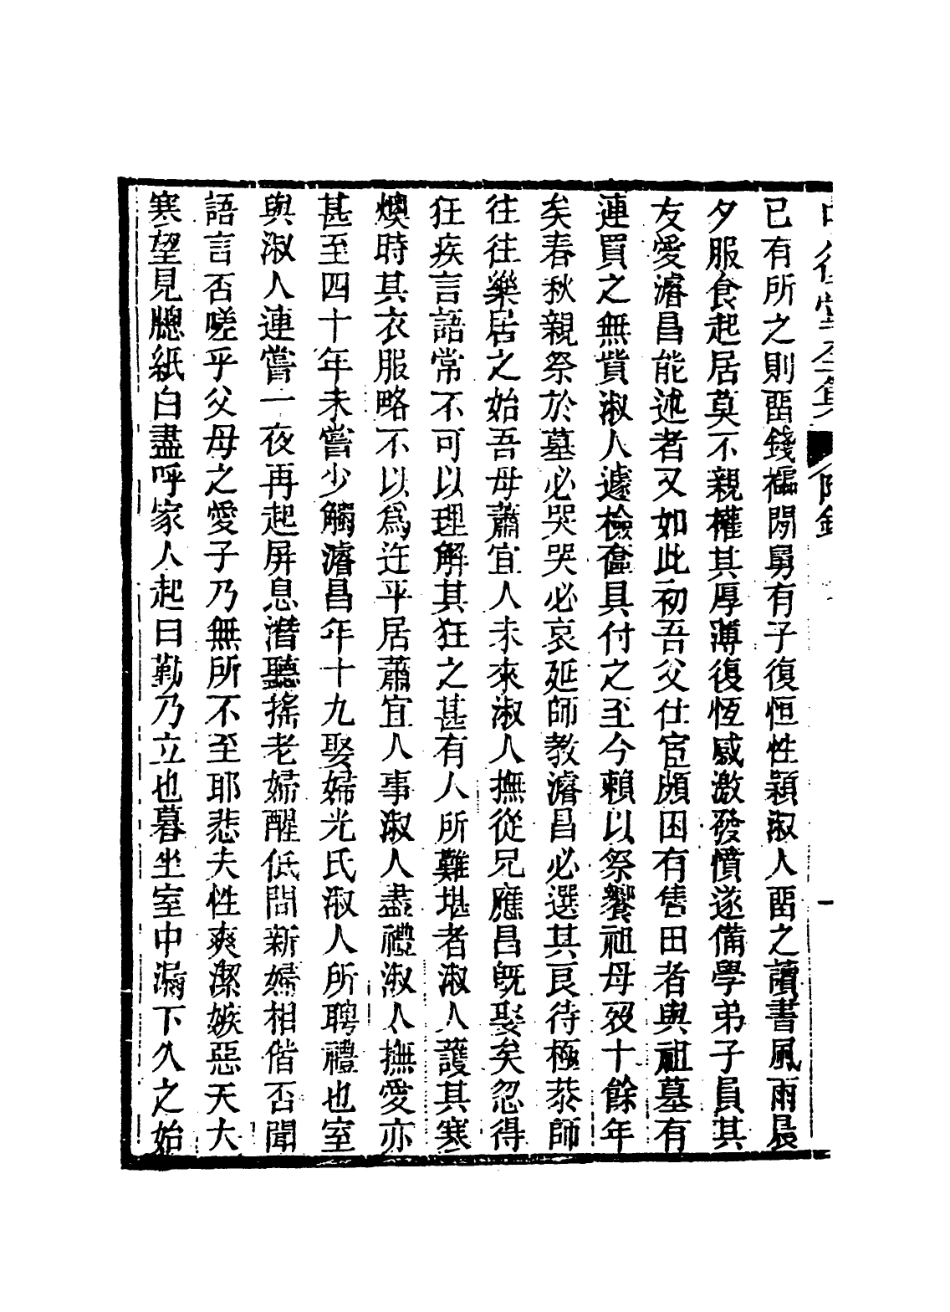 已有所之則畱錢襦閒舅有子復恒性穎淑人畱之讀書風雨晨
夕服食起居莫不親權其厚薄復恆感激發憤遂備學弟子員其
友愛濬昌能述者又如此初吾父仕宦頗困有售田者與祖墓有
連買之無貲淑人遽檢奩具付之至今賴以祭饗祖母歿十餘年
矣春秋親祭於墓必哭哭必哀延師教濬昌必選其良待極恭師
往往樂居之始吾母蕭宜人未來淑人撫從兄應昌旣娶矣忽得
狂疾言語常不可以理解其狂之甚有人所難堪者淑人護其寒
燠時其衣服略不以爲迕平居蕭宜人事淑人盡禮淑人撫愛亦
甚至四十年未嘗少觸濬昌年十九娶婦光氏淑人所聘禮也室
與淑人連嘗一夜再起屏息潛聽搖老婦醒低問新婦相偕否聞
語言否嗟乎父母之愛子乃無所不至耶悲夫性爽潔嫉惡天大
寒望見牕紙白盡呼家人起曰勤乃立也暮坐室中漏下久之始